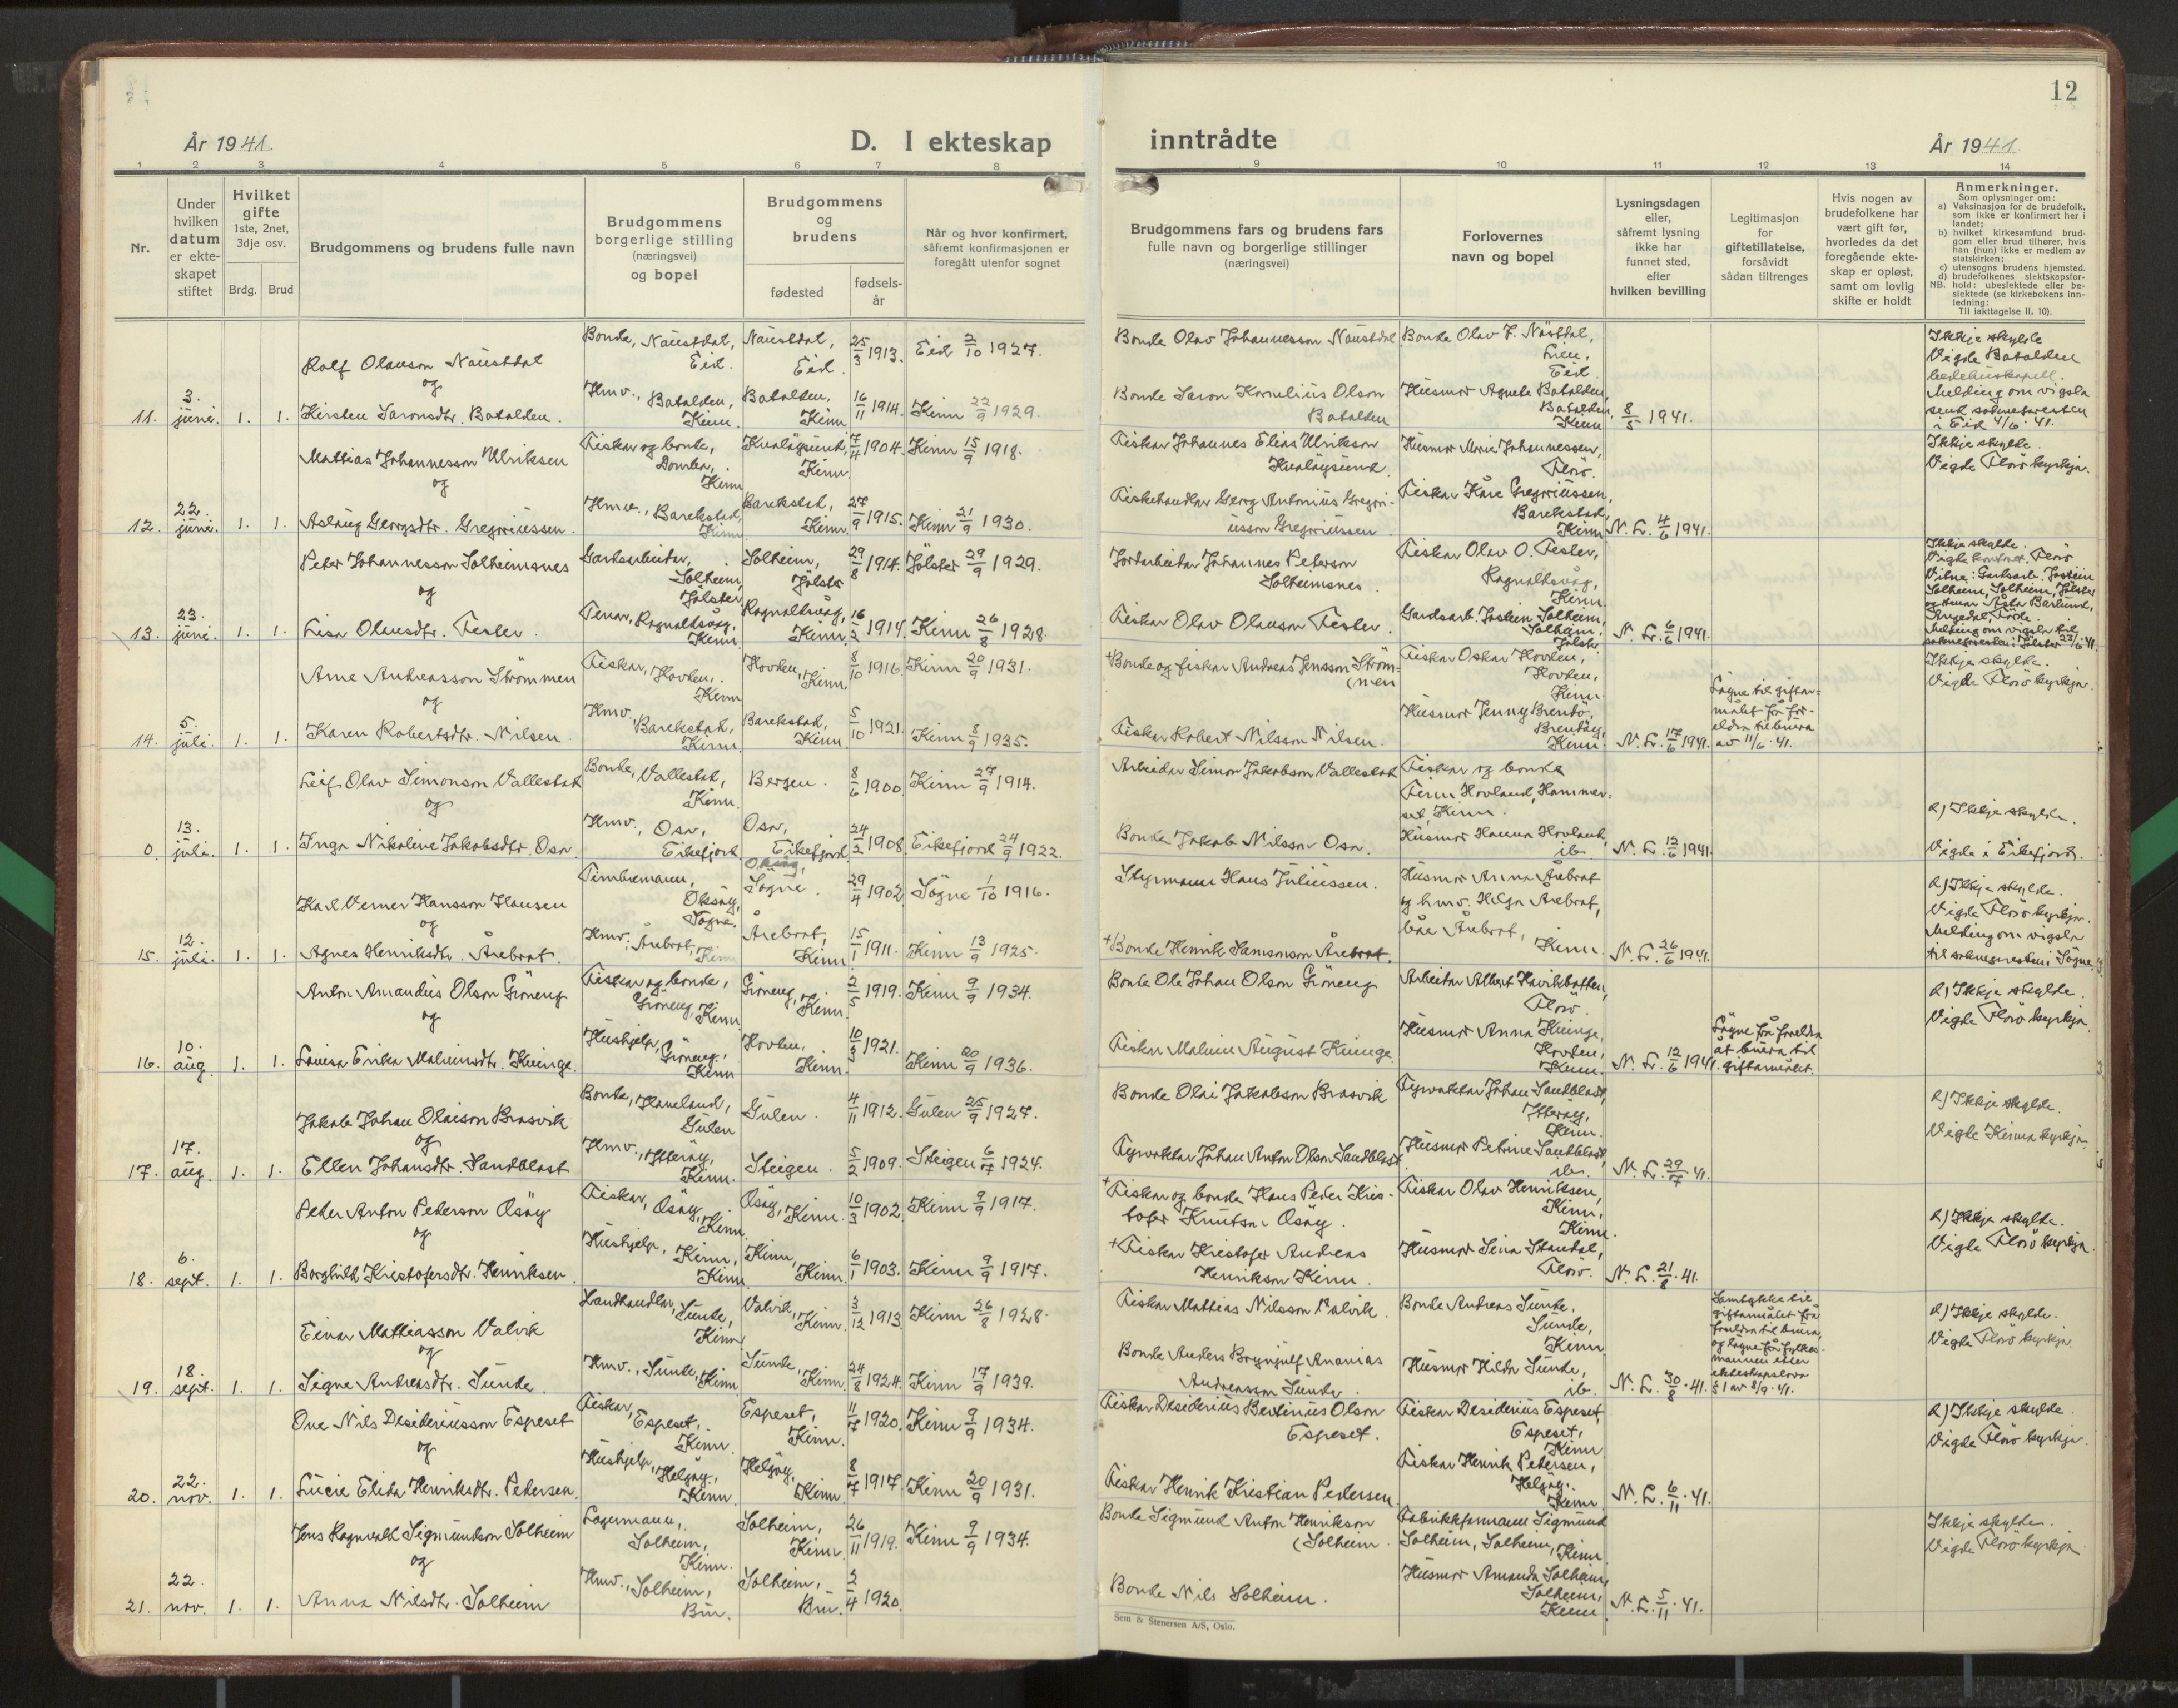 12
År 1941.
D. I ekteskap inntrådte
År 1941.
1 2 3 4 5 6 7 8 9 10 11 12 13 14
Nr.
Under
hvilken
datum
er ekte-
skapet
stiftet
Hvilket
gifte
1ste, 2net,
3dje osv.
Brdg. Brud
Brudgommens og brudens fulle navn
Brudgommens
borgerlige stilling
(næringsvei)
og bopel
Brudgommens
og
brudens
fødested
fødsels-
år
Når og hvor konfirmert,
såfremt konfirmasjonen er
foregått utenfor sognet
Brudgommens fars og brudens fars
fulle navn og borgerlige stillinger
(næringsvei)
Forlovernes
navn og bopel
Lysningsdagen
eller,
såfremt lysning
ikke har
funnet sted,
efter
hvilken bevilling
Legitimasjon
for
giftetillatelse,
forsåvidt
sådan tiltrenges
Hvis nogen av
brudefolkene har
vært gift før,
hvorledes da det
foregående ekte-
skap er opløst,
samt om lovlig
skifte er holdt
Anmerkninger.
Som oplysninger om:
a) Vaksinasjon for de brudefolk,
som ikke er konfirmert her i
landet;
b) hvilket kirkesamfund brud-
gom eller brud tilhører, hvis
han (hun) ikke er medlem av
statskirken;
c) utensogns brudens hjemsted.
d) brudefolkenes slektskapsfor-
NB. hold: ubeslektede eller be-
slektede (se kirkebokens inn-
ledning:
Til iakttagelse II. 10).
11. 3. juni. 1. 1.
Rolf Olavson Naustdal
og
Kirsten Saronsdtr. Batalden.
Bonde, Naustdal,
Eid.
Hmv., Batalden,
Kinn.
Naustdal,
Eid.
25/3 1913. Eid 2/10 1927.
Batalden,
Kinn
16/11 1914. Kinn 22/9 1929.
Bonde Olav Johannesson Naustdal
Bonde Saron Kornelius Olson
Batalden
Bonde Olav J. Nausdal,
Eid.
Husmor Agnete Batalden,
Batalden,
Kinn
8/5 1941.
Ikkje skylde
Vigde Batalden
bedehuskapell.
Melding om vigsla
send soknepresten
i Eid 4/6. 41.
12. 22. juni. 1. 1.
Mattias Johannesson Ulriksen
og
Aslaug Georgsdtr. Gregoriussen.
Fiskar og bonde,
Domba,
Kinn
Hmv., Barekstad,
Kinn
Kvaløysund,
Kinn.
7/4 1904. Kinn 15/9 1918.
Barekstad,
Kinn.
27/9 1915. Kinn 21/9 1930.
Fiskar Johannes Elias Ulrikson
Kvaløysund
Fiskehandlar Georg Antonius Gregori-
usson Gregoriussen
Husmor Marie Johannessen,
Florö.
Fiskar Kåre Gregoriussen,
Barekstad,
Kinn
N. L. 4/6 1941.
Ikkje skylde.
Vigde Florö kyrkja.
13. 23. juni. 1. 1.
Peter Johannesson Solheimsnes
og
Lisa Olausdtr. Fester.
Gardsarbeidar,
Solheim,
Jølster
Tenar, Rognaldsvåg,
Kinn.
Solheim,
Jølster
29/8 1914. Jölster 29/9 1929.
Rognaldsvåg,
Kinn.
16/2 1914. Kinn 26/8 1928.
Jordarbeidar Johannes Peterson
Solheimsnes.
Fiskar Olav Olauson Fester.
Fiskar Olav O. Fester,
Rognaldsvåg,
Kinn.
Gardsarb. Jostein Solheim,
Solheim,
Jölster
N. L. 6/6 1941.
Ikkje skylde.
Vigde kontoret Florö
Vitne: Gardsarb. Jostein
Solheim, Solheim, Jölster
Melding om vigsla til
soknepresten i Jölster 23/6 41.
14. 5. juli. 1. 1.
Arne Andreasson Strømmen
og
Karen Robertsdtr. Nilsen.
Fiskar, Hovden,
Kinn
Hmv., Barekstad,
Kinn.
Hovden,
Kinn.
8/10 1916. Kinn 20/9 1931.
Barekstad,
Kinn.
5/10 1921. Kinn 8/9 1935.
+Bonde og fiskar Andreas Jensson Ström-
(men
Fiskar Robert Nilsson Nilsen.
Fiskar Oskar Hovden,
Hovden,
Kinn.
Husmor Jenny Brendö,
Brendöy,
Kinn
N. L. 17/6 1941.
Løyve til giftar-
målet frå for-
eldra til brura
av 11/6. 41.
Ikkje skylde.
Vigde Florö kyrkja.
0. 13. juli. 1. 1.
Leif Olav Simonson Vallestad
og
Inga Nikoline Jakobsdtr. Osa
Bonde, Vallestad,
Kinn.
Hmv., Osa,
Eikefjord
Bergen.
8/6 1900. Kinn 27/9 1914.
Osa,
Eikefjord
24/2 1908. Eikefjord 24/9 1922.
Arbeidar Simon Jakobson Vallestad
Bonde Jakob Nilsson Osa.
Fiskar og bonde
Finn Hovland, Hammer-
set, Kinn.
Husmor Hanna Hovland,
ib.
N. L. 12/6 1941.
d) Ikkje skylde.
Vigde i Eikefjord.
15. 12. juli. 1. 1.
Karl Verner Hansson Hansen
og
Agnes Henriksdtr. Årebrot.
Timbremann,
Oksøy,
Søgne.
Hmv. Årebrot, Kinn
Oksøy,
Søgne.
29/4 1902. Søgne 1/10 1916.
Årebrot,
Kinn.
15/1 1911. Kinn 13/9 1925.
Styrmann Hans Juliussen.
+Bonde Henrik Samsonson Årebrot.
Husmor Anna Årebrot
og hmv. Helga Årebrot,
båe Årebrot,
Kinn.
N. L. 26/6 1941.
d) Ikkje skylde.
Vigde Florö kyrkja.
Melding om vigsla
til soknepresten i Søgne.
16. 10. aug. 1. 1.
Anton Amandus Olson Grøneng
og
Lovisa Erika Malvinsdtr. Kvinge.
Fiskar og bonde,
Grøneng, Kinn
Hushjelp,
Grøneng,
Kinn
Grøneng,
Kinn.
2/5 1919. Kinn 9/9 1934.
Hovden,
Kinn.
10/3 1921. Kinn 20/9 1936.
Bonde Ole Johan Olson Grøneng
Fiskar Malvin August Kvinge.
Arbeidar Albert Havikbotten,
Florö.
Husmor Anna Kvinge,
Hovden,
Kinn.
N. L. 12/6 1941.
Løyve frå foreldra
åt brura til
giftarmålet.
d) Ikkje skylde.
Vigde Florö kyrkja.
17. 17. aug. 1. 1.
Jakob Johan Olaison Brosvik
og
Ellen Johansdtr. Sandblost
Bonde, Haveland,
Gulen
Hmv., Ytterøy,
Kinn.
Gulen.
4/11 1912. Gulen 25/9 1927.
Steigen.
5/2 1909. Steigen 6/7 1924.
Bonde Olai Jakobson Brosvik
Fyrvaktar Johan Anton Olson Sandblost
Fyrvaktar Johan Sandblost,
Ytterøy,
Kinn.
Husmor Petrine Sandblost,
ib.
N. L. 29/7. 41.
d) Ikkje skylde.
Vigde Kinna kyrkja.
18. 6. sept. 1. 1.
Peder Anton Pederson Osøy
og
Borghild Kristofersdtr. Henriksen.
Fiskar, Osøy,
Kinn.
Hushjelp, Kinn,
Kinn
Osøy, Kinn.
10/3 1902. Kinn 9/9 1917.
Kinn,
Kinn.
6/1 1903. Kinn 9/9 1917.
+Fiskar og bonde Hans Peder Kris-
tofer Knutson Osøy.
+Fiskar Kristofer Andreas
Henrikson Kinn.
Fiskar Olav Henriksen,
Kinn,
Kinn.
Husmor Sina Standal,
Florö.
N. L. 21/8. 41.
d) Ikkje skylde.
Vigde Florö kyrkja.
19. 18. sept. 1. 1.
Einar Mattiasson Valvik
og
Signe Andreasdtr. Sunde.
Landhandlar, Sunde,
Kinn
Hmv., Sunde, Kinn
Valvik,
Kinn.
3/12 1913. Kinn 26/8 1928.
Sunde,
Kinn.
24/8 1924. Kinn 17/9 1939.
Fiskar Mattias Nilsson Valvik.
Bonde Anders Brynjulf Ananias
Andreasson Sunde.
Bonde Andreas Sunde,
Sunde,
Kinn
Husmor Hilda Sunde,
ib.
N. L. 30/8. 41.
Samtykke til
giftarmålet frå
foreldra til brura,
og løyve frå fylkes-
mannen etter
ekteskapslova
§ 1 av 8/9. 41.
d) Ikkje skylde.
Vigde Florö kyrkja
20. 22. nov. 1. 1.
One Nils Desideriusson Espeset
og
Lucie Elida Henriksdtr. Pedersen.
Fiskar,
Espeset,
Kinn.
Hushjelp,
Helgøy,
Kinn.
Espeset,
Kinn.
11/7 1920. Kinn 9/9 1934.
Helgøy,
Kinn.
8/7 1917. Kinn 20/9 1931.
Fiskar Desiderius Bertinius Olson
Espeset.
Fiskar Henrik Kristian Pedersen
Fiskar Desiderius Espeset,
Espeset,
Kinn
Fiskar Henrik Pedersen,
Helgøy,
Kinn
N. L. 6/11. 41.
d) Ikkje skylde.
Vigde Florö kyrkja.
21. 22. nov. 1. 1.
Jens Ragnvald Sigmundson Solheim
og
Anna Nilsdtr. Solheim
Lagermann,
Solheim,
Kinn.
Hmv., Solheim,
Bru.
Solheim,
Kinn.
26/11 1919. Kinn 9/9 1934.
Solheim,
Bru.
2/4 1920.
Bonde Sigmund Anton Henrikson
(Solheim.
Bonde Nils Solheim.
Fabrikkformann Sigmund
Solheim, Solheim, Kinn.
Husmor Amanda Solheim,
Solheim,
Kinn
N. L. 5/11. 41.
Ikkje skylde.
Vigde Florö kyrkja
Sem & Stenersen A/S, Oslo.